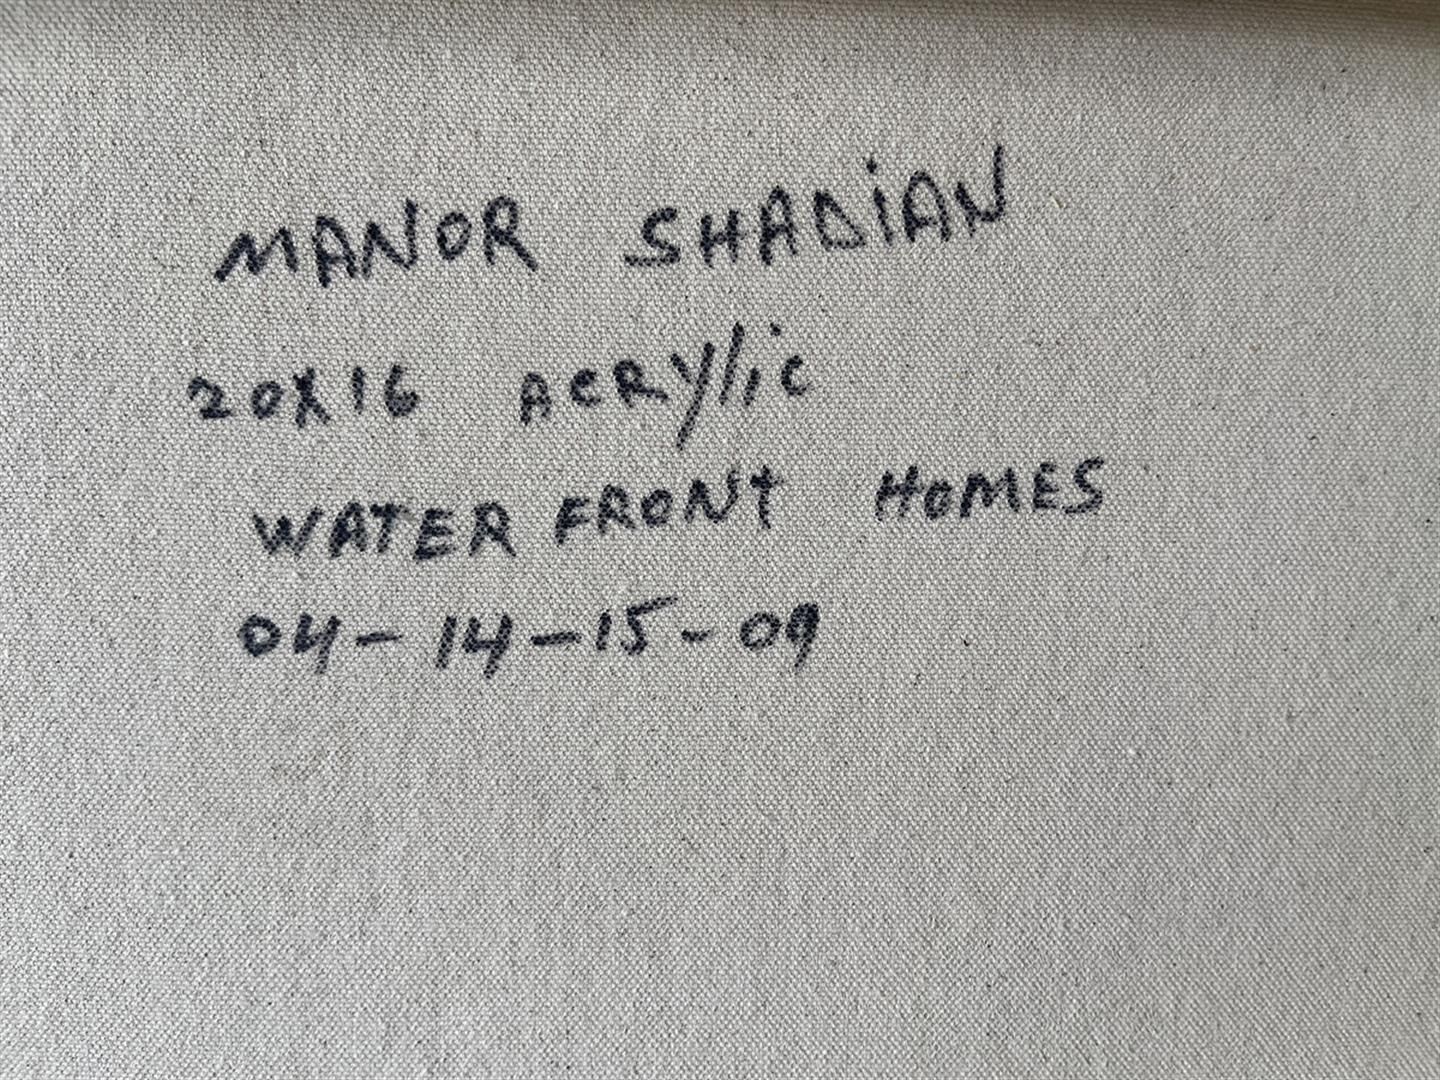 MANOR SHADiAN
20X16 ACRylic
WATER FRONT HOMES
04-14-15-09